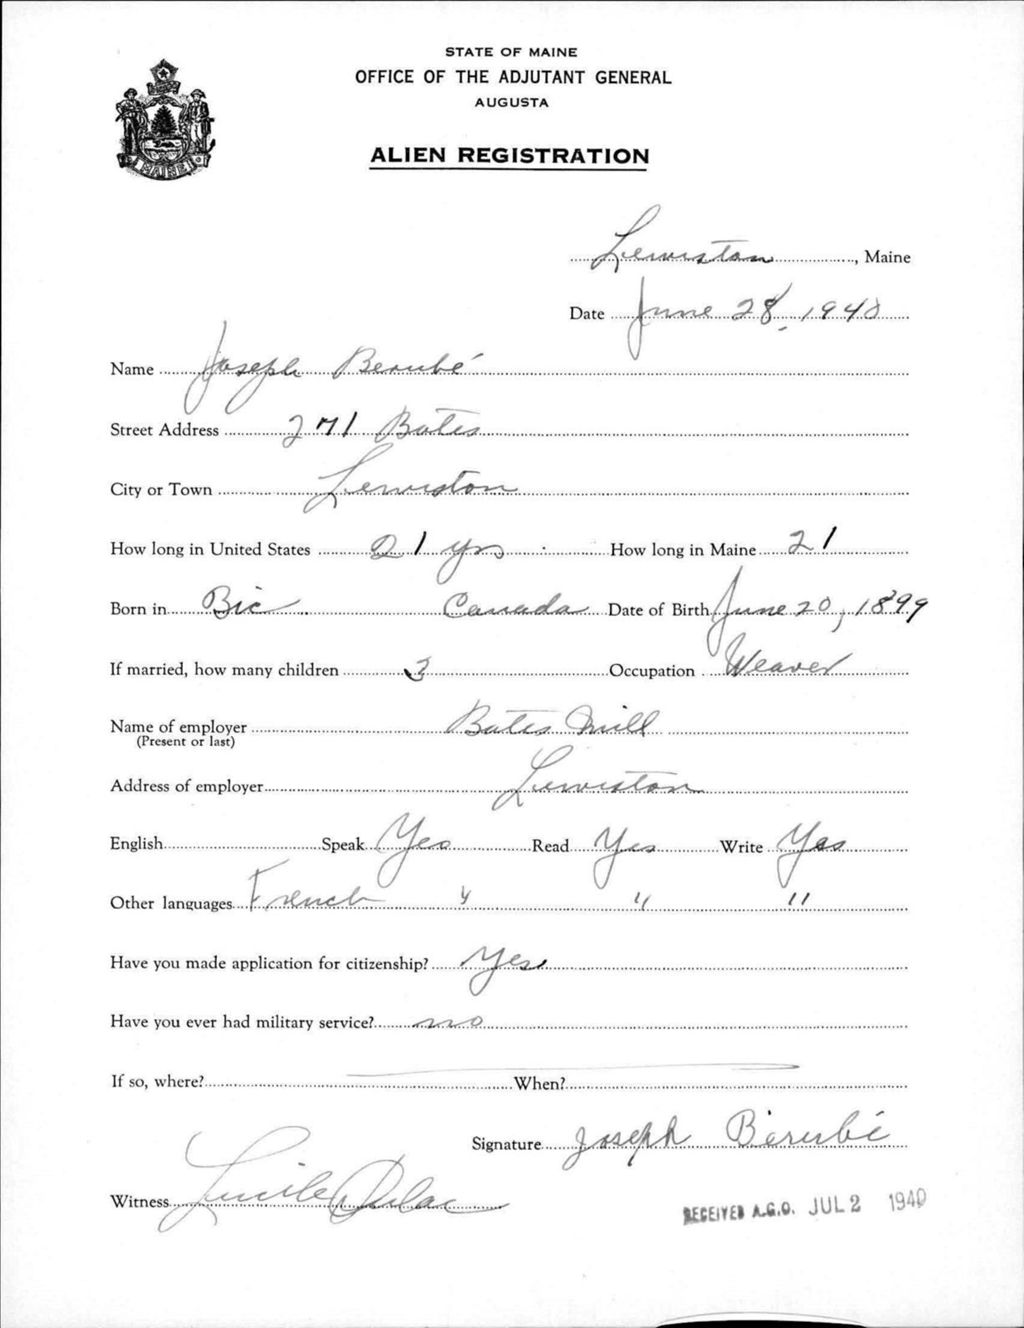 STATE OF MAINE
OFFICE OF THE ADJUTANT GENERAL
AUGUSTA
ALIEN REGISTRATION
MAINE
Lewiston, Maine
Date June 28, 1940
Name Joseph Berubé
Street Address 271 Bates
City or Town Lewiston
How long in United States 21 yrs How long in Maine 21
Born in Bic Canada Date of Birth June 20, 1899
If married, how many children 3 Occupation Weaver
Name of employer Bates Mill
(Present or last)
Address of employer Lewiston
English Speak Yes Read Yes Write Yes
Other languages French " " "
Have you made application for citizenship? Yes
Have you ever had military service? no
If so, where? When?
Signature Joseph Bérubé
Witness Lucile Dulac
RECEIVED A.G.O. JUL 2 1940